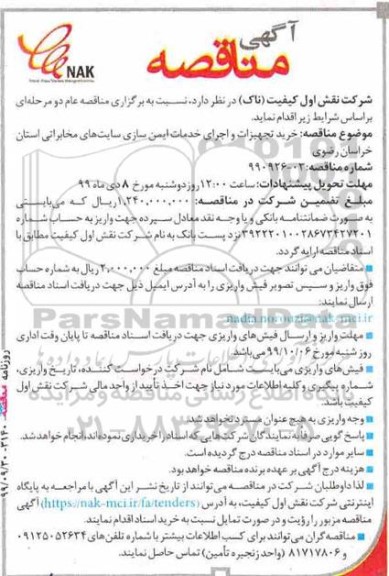 آگهی
مناقصه
NAK
شرکت نقش اول کیفیت (ناک) در نظر دارد، نسبت به برگزاری مناقصه عام دو مرحله‌ای
براساس شرایط زیر اقدام نماید.
موضوع مناقصه: خرید تجهیزات و اجرای خدمات ایمن سازی سایت‌های مخابراتی استان
خراسان رضوی
شماره مناقصه: ۰۲-۹۹۰۹۲۶
مهلت تحویل پیشنهادات: ساعت ۱۲:۰۰ روز دوشنبه مورخ ۸ دی ماه ۹۹
مبلغ تضمین شرکت در مناقصه: ۱،۲۴۰،۰۰۰،۰۰۰ ریال که می‌بایستی
به صورت ضمانتنامه بانکی و یا وجه نقد معادل سپرده جهت واریز به حساب شماره
نزد پست بانک به نام شرکت نقش اول کیفیت مطابق با
اسناد مناقصه ارایه گردد.
متقاضیان می توانند جهت دریافت اسناد مناقصه مبلغ ۲،۰۰۰،۰۰۰ ریال به شماره حساب
فوق واریز و سپس تصویر فیش واریزی را به آدرس ایمیل ذیل جهت دریافت اسناد مناقصه
ارسال نمایند:
مهلت واریز و ارسال فیش‌های واریزی جهت دریافت اسناد مناقصه تا پایان وقت اداری
روز شنبه مورخ ۹۹/۱۰/۰۶ می‌باشد.
فیش‌های واریزی می‌بایست شامل نام شرکت درخواست کننده، تاریخ واریزی،
شماره پیگیری و کلیه اطلاعات مورد نیاز جهت اخذ تأیید از واحد مالی شرکت نقش اول
کیفیت باشد.
وجه واریزی به هیچ عنوان مسترد نخواهد شد.
پاسخ گویی صرفاً به نمایندگان شرکت‌هایی که اسناد را خریداری نموده‌اند، انجام خواهد شد.
سایر موارد در اسناد مناقصه درج گردیده است.
هزینه درج آگهی بر عهده برنده مناقصه خواهد بود.
لذا داوطلبان شرکت در مناقصه می‌توانند از تاریخ نشر این آگهی با مراجعه به پایگاه
اینترنتی شرکت نقش اول کیفیت، به آدرس (https://nak-mci.ir/fa/tenders) آگهی
مناقصه مزبور را رؤیت و در صورت تمایل نسبت به خرید اسناد اقدام نمایند.
مناقصه گران می‌توانند برای کسب اطلاعات بیشتر با شماره تلفن های ۰۹۱۲۵۰۵۲۶۳۴
و ۸۱۷۱۷۸۰۶ (واحد زنجیره تأمین) تماس حاصل نمایند.
ParsNamadData
روزنامه مناقصه ۹۹/۰۹/۳۰